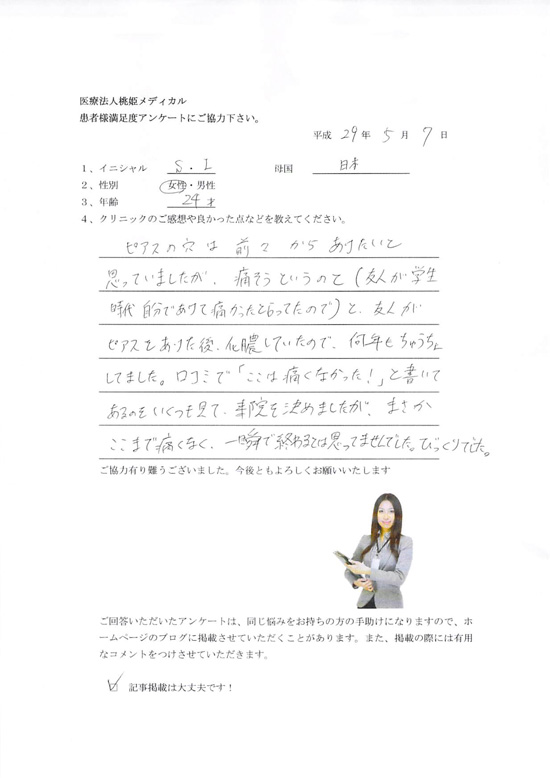 医療法人桃姫メディカル
患者様満足度アンケートにご協力下さい。
平成 29 年 5 月 7 日
1、イニシャル S・I 母国 日本
2、性別 女性・男性
3、年齢 24才
4、クリニックのご感想や良かった点などを教えてください。
ピアスの穴は前々からあけたいと
思っていましたが、痛そうというのと(友人が学生
時代自分であけて痛かったとらってたので)と、友人が
ピアスをあけた後、化膿していたので、何年もちゅうちょ
してました。口コミで「ここは痛くなかった!」と書いて
あるのをいくつも見て、来院を決めましたが、まさか
ここまで痛くなく、一瞬で終わるとは思ってませんでした。びっくりでした。
ご協力有り難うございました。今後ともよろしくお願いいたします
ご回答いただいたアンケートは、同じ悩みをお持ちの方の手助けになりますので、ホ
ームページのブログに掲載させていただくことがあります。また、掲載の際には有用
なコメントをつけさせていただきます。
記事掲載は大丈夫です!